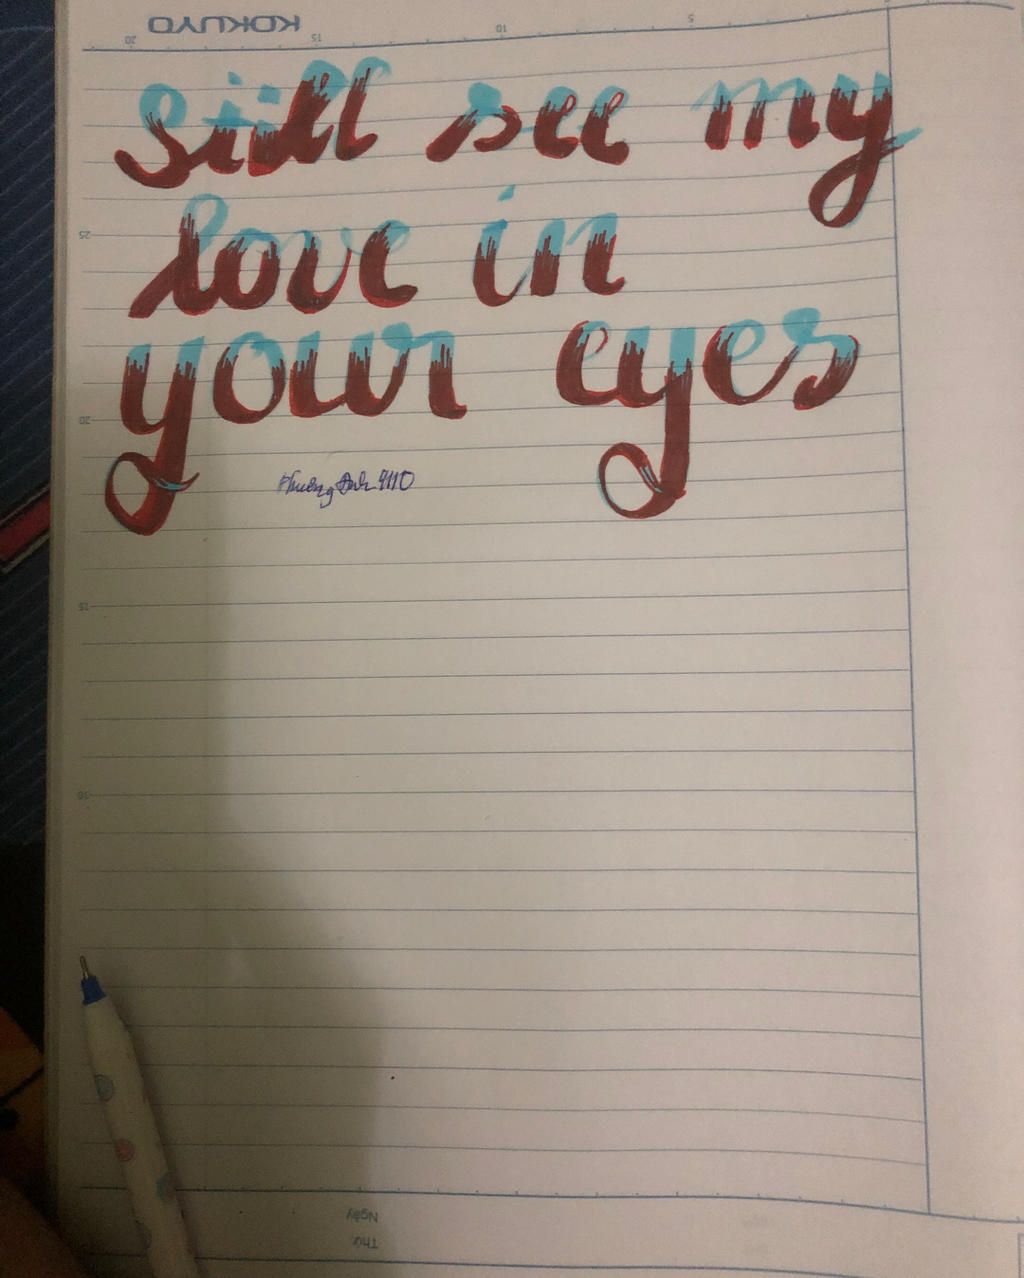 KOKUYO
20 15 10 5
Still see my
love in
25
your eyes
20
Phương Anh 9A10
15
10
Ngày
Thứ